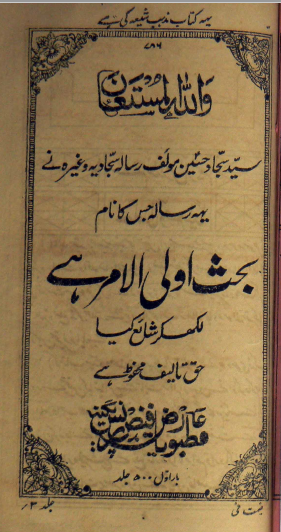 یہہ کتاب مذہب شیعہ کی ہے
۷۸۶
واللہ المستعان
سیّد سجّاد حسین مولف رسالہ سجّادیہ وغیرہ نے
یہہ رسالہ جس کا نام
بحث اولی الامر ہے
لکھ کر شائع کیا
حق تالیف محفوظ ہے
بار اوّل ۵۰۰ جلد